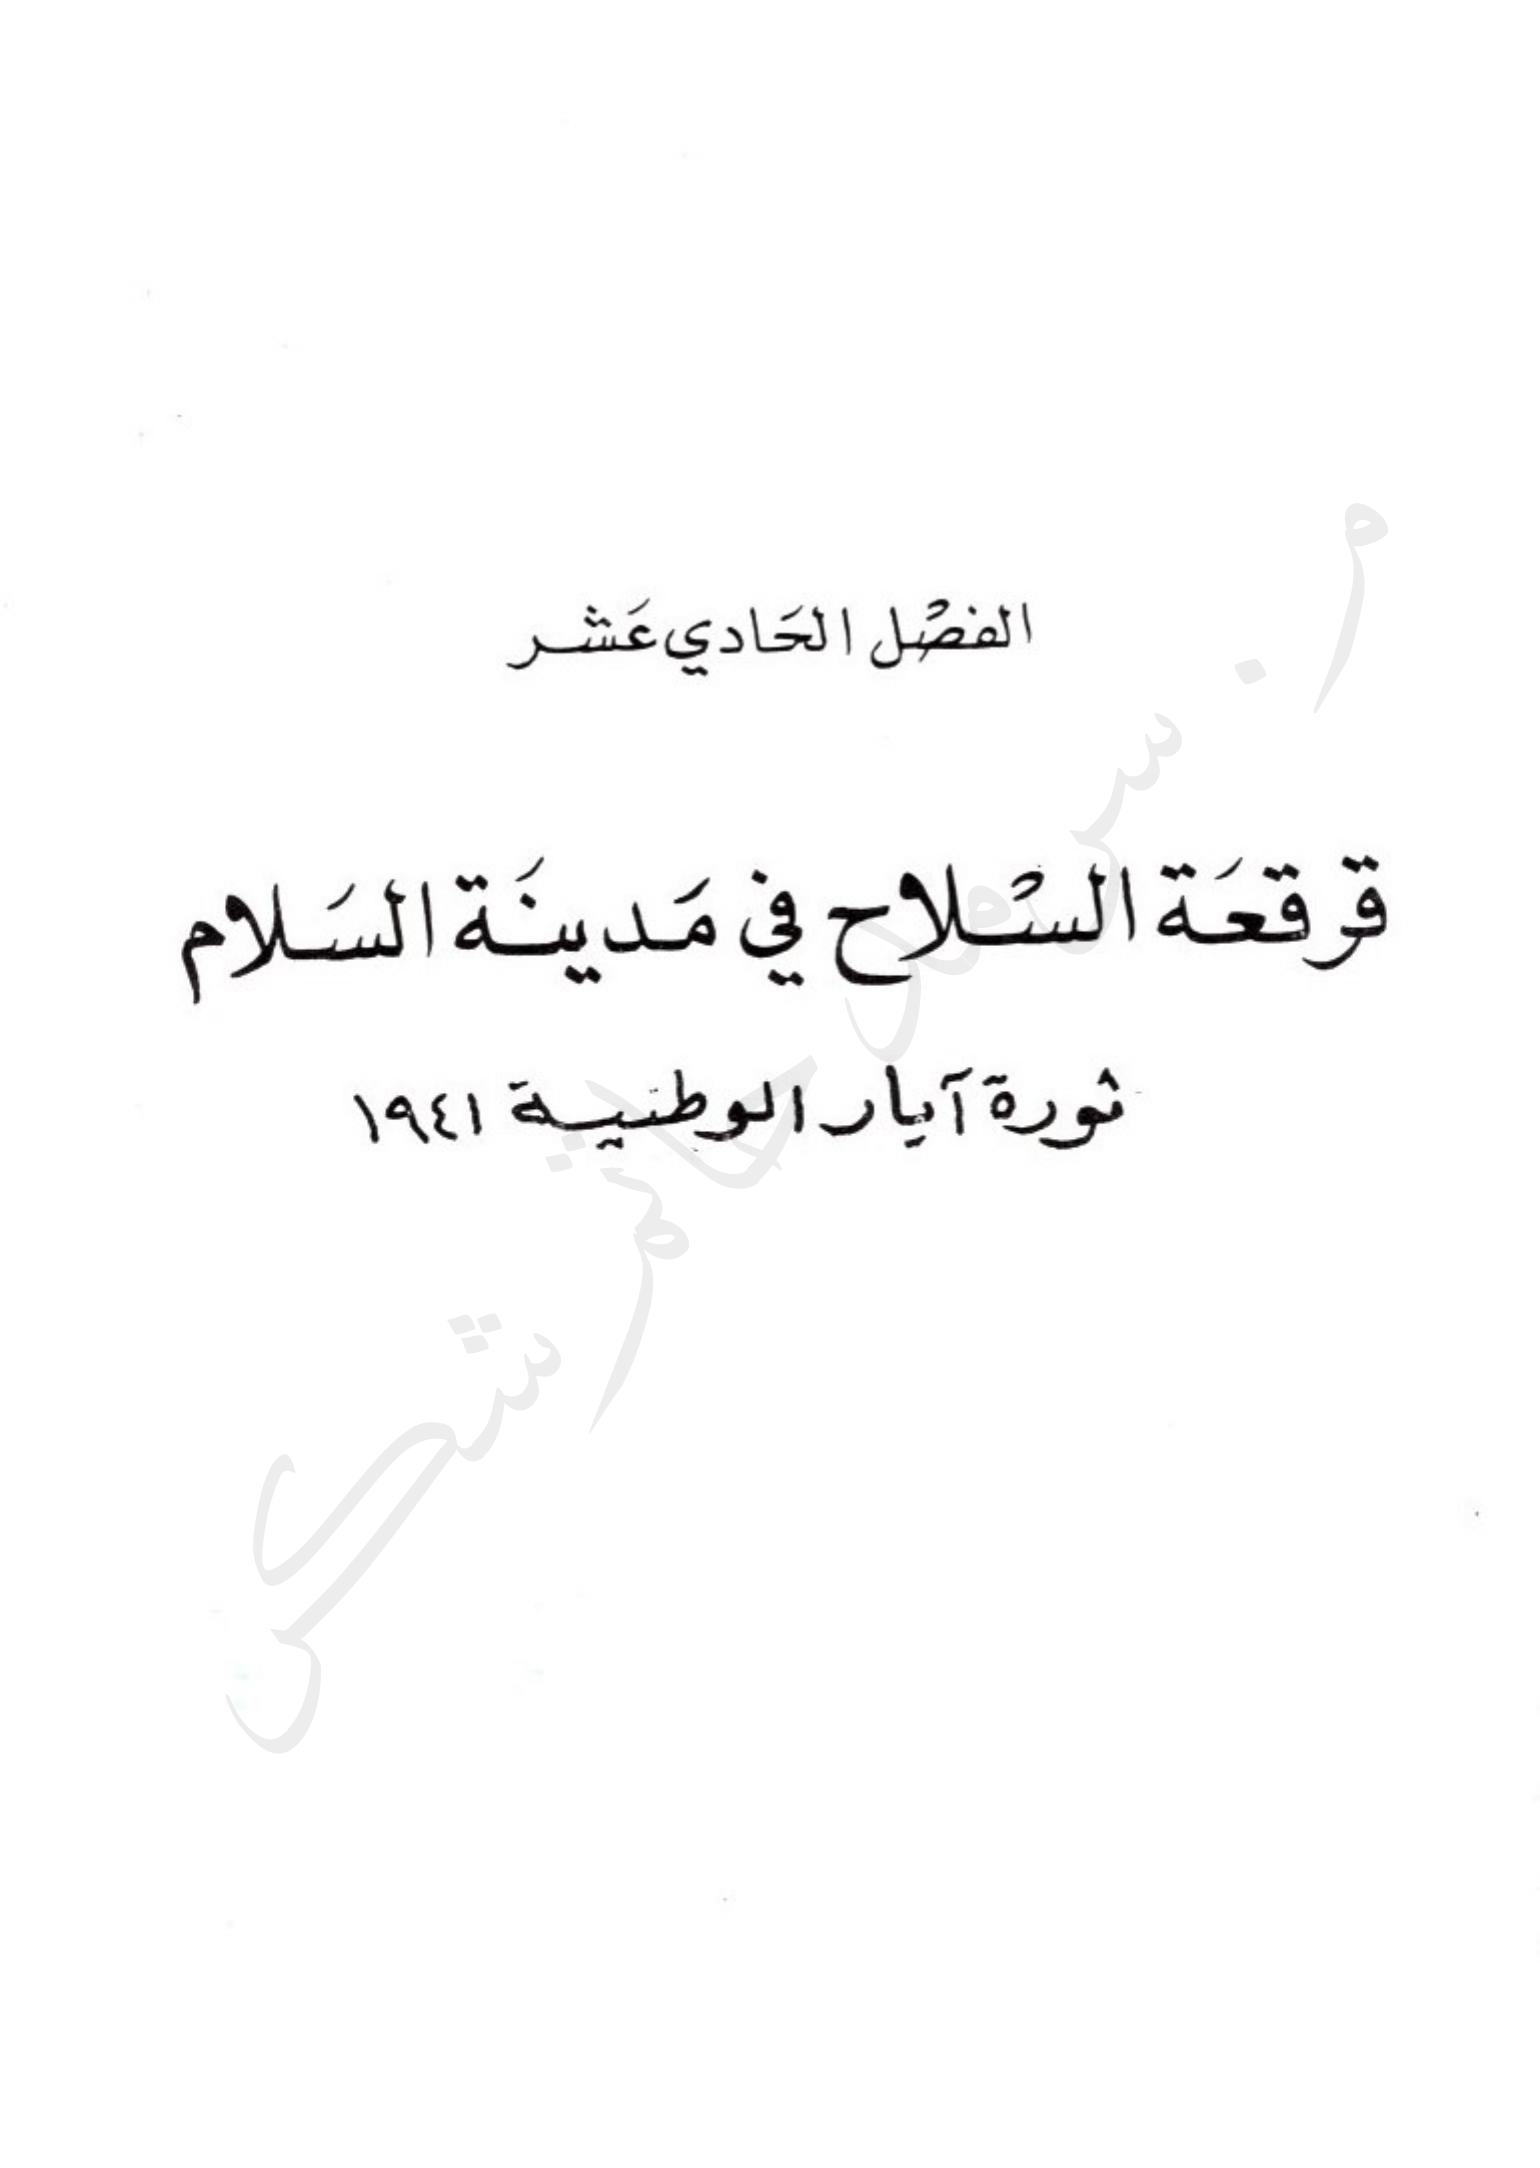 الفصْل الحَادي عَشر
قرقعَة السْلاح في مَدينَة السَلام
ثورة آيار الوطنية ١٩٤١
م. سرمد حاتم شكر